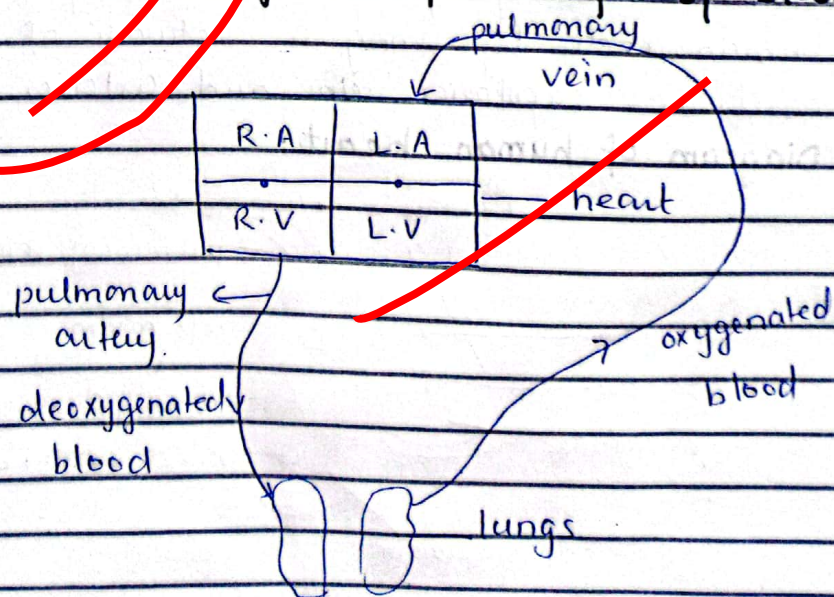 pulmonary
vein
R.A
L.A
R.V
L.V
heart
pulmonary
artery.
deoxygenated
blood
oxygenated
blood
lungs